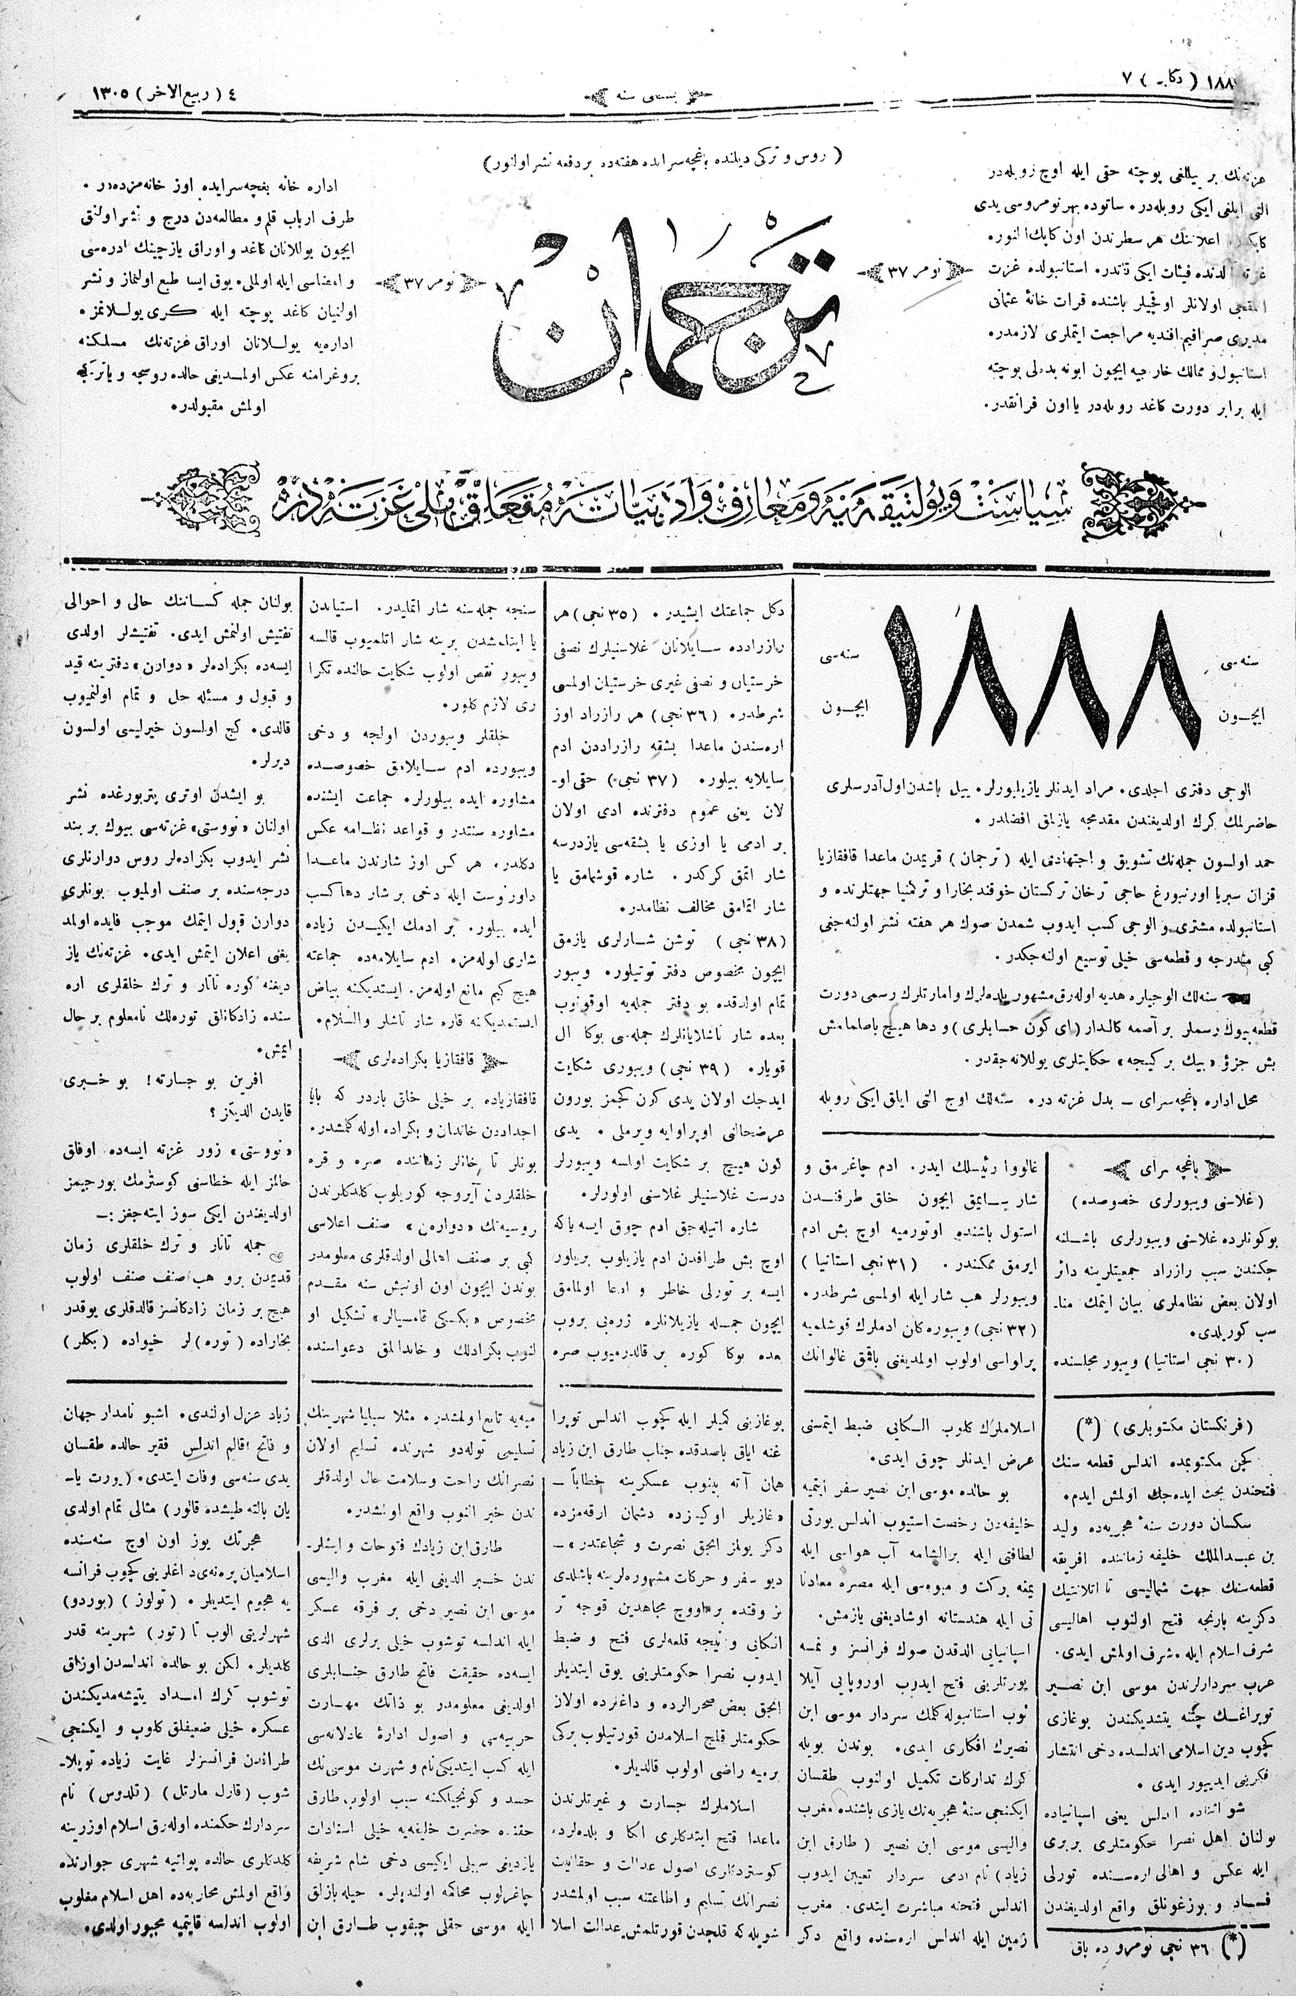 ١٨٨ ( دكابر ) ٧
بشنجى سنه
٤ ( ربيع الاخر ) ١٣٠٥
( روس و تركى ديلنده باغچه‌سرايده هفته‌ده بر دفعه نشر اولنور )
غزته‌نك بر ييللغى پوچته حقى ايله اوچ روبله‌در
التى ايلغى ايكى روبله‌در. ساتوده بهر نومروسى يدى
اعلاننك هر سطرندن اون كاپك النور.
استانبولده غزت
اولانلر اوقچيلر باشنده قرات خانهٔ عثمانى
مديرى صرافيم افنديه مراجعت ايتملرى لازمدر.
استانبول و ممالك خارجيه ايچون ابونه بدلى پوچته
ايله برابر دورت كاغد روبله‌در يا اون فرانقدر.
نومر ٣٧
ترجمان
نومر ٣٧
اداره خانه بغچه سرايده اوز خانه‌مزده‌در .
طرف ارباب قلم و مطالعه‌دن درج و نشر اولنق
ايچون يوللانان كاغد و اوراق يازچينك ادره‌سى
و امضاسى ايله اولملى. يوق ايسا طبع اولنماز و نشر
اولنيان كاغد پوچته ايله كرى يوللانمز.
اداره‌يه يوللانان اوراق غزته‌نك مسلكنه
پروغرامنه عكس اولمديغى حالده روسچه و يا تركچه
اولمش مقبولدر.
سياست و پولتيقه‌يه و معارف و ادبياته متعلق ملى غزته‌در
سنه‌سى
ايچون
١٨٨٨
سنه‌سى
ايچون
الوجى دفترى اچلدى. مراد ايدنلر يازيلبورلر. ييل باشدن اول آدرسلرى
حاضرلمك كرك اولديغندن مقدمجه يازلمق افضلدر .
حمد اولسون جمله‌نك تشويق و اجتهادى ايله ( ترجمان ) قريمدن ماعدا قافقازيا
قزان سبريا اورنبورغ حاجى ترخان تركستان خوقند بخارا و تركمنيا جهتلرنده و
استانبولده مشترى و الوجى كسب ايدوب شمدن صوك هر هفته نشر اولنه‌جغى
كبى مندرجه و قطعه‌سى خيلى توسيع اولنه‌جكدر.
سنه‌لك الوجياره هديه اوله‌رق مشهور بلده‌لرك و امارتلرك رسمى دورت
قطعه بيوك رسملر بر آصمه كالندار ( اى كون حسابلرى ) و دها هيچ باصلمامش
بش جزؤ «بيك بر كيجه» حكايتلرى يوللانه‌جقدر.
محل اداره باغچه‌سراى — بدل غزته در. سنه‌لك اوچ التى ايلق ايكى روبله
باغچه سراى
( غلاسنى ويبورلرى خصوصده )
بوكونلرده غلاسنى ويبورلرى باشلنه
جكندن سبب رازراد جمعيتلرينه دائر
اولان بعض نظاملرى بيان ايتمك منا-
سب كوريلدى.
( ٣٠ نجى استاتيا ) ويبور مجلسنده
غالووا رئيسلك ايدر. ادم چاغرمق و
شار ايچون خلق طرفندن
استول باشنده اوتورمه‌يه اوچ بش ادم
ايرمق ممكندر. ( ٣١ نجى استاتيا )
ويبورلر هب شار ايله اولمسى شرطدر.
( ٣٢ نجى ) ويبوره كان ادملرك قوشلمه‌يه
پراواسى اولوب اولمديغنى باقمق غالوانك
دكل جماعتك ايشيدر. ( ٣٥ نجى ) هر
رازرادده سايلانان غلاسنيلرك نصفى
خرستيان و نصفى غيرى خرستيان اولمسى
شرطدر. ( ٣٦ نجى ) هر رازراد اوز
اره‌سندن ماعدا بشقه رازراددن ادم
سايلايه بيلور. ( ٣٧ نجى ) حقى او-
لان يعنى عموم دفترنده ادى اولان
بر ادمى يا اوزى يا بشقه‌سى يازدرسه
شار اتمق كركدر. شاره قوشمامق يا
شار اتمامق مخالف نظامدر.
( ٣٨ نجى ) توشن شارلرى يازمق
ايچون مخصوص دفتر توتيلور. ويبور
تمام اولدقده بو دفتر جمله‌يه اوقونوب
بعده شار تاشلايانلرك جمله‌سى بوكا ال
قويار. ( ٣٩ نجى ) ويبورى شكايت
ايدجك اولان يدى كون كچمز بورون
عرضحالنى اوپراوايه ويرملى . يدى
كون هيچ بر شكايت اولمسه ويبورلر
درست غلاسنيلر غلاسنى اولورلر.
شاره اتيله‌جق ادم چوق ايسه ياكه
اوچ بش طرافدن ادم يازيلوب بريلور
ايسه بر تورلى خاطر و ادعا اولمامق
ايچون جمله يازيلانلره ژره‌بى بروب
بعده بوكا كوره بر قالدرميوب صره
سنجه جمله‌سنه شار اتمليدر. استياندن
يا ايتلمشدن برينه شار اتلميوب قالسه
ويبور نقص اولوب شكايت حالنده تكرا
رى لازم كلور.
خلقلر ويبوردن اولجه و دخى
ويبورده ادم سايلامق خصوصده
مشاوره ايده بيلورلر. جماعت ايشنده
مشاوره سنتدر و قواعد نظامه عكس
دكلدر. هر كس اوز شارندن ماعدا
داورنوست ايله دخى بر شار دها كسب
ايده بيلور. بر ادمك ايكيدن زياده
شارى اوله‌مز. ادم سايلامه‌ده جماعته
هيچ كيم مانع اوله‌مز. ايستديكنه بياض
ايستمديكنه قاره شار تاشلر والسلام.
قافقازيا بكزاده‌لرى
قافقازياده بر خيلى خلق باردر كه بابا
اجداددن خاندان و بكزاده اوله كلمشدر.
بونلر تا خانلر زماننده صره و قره
خلقلردن آيروجه كوريلوب كلدكلرندن
روسيه‌نك «دوارەن» صنف اعلاسى
كبى بر صنف اهالى اولدقلرى معلومدر
بوندن ايچون اون اونبش سنه مقدم
مخصوص «بكسكى قامسيالر» تشكيل او
لنوب بكزادلك و خاندانلق دعواسنده
بولنان جمله كسانك حالى و احوالى
تفتيش اولنمش ايدى. تفتيشلر اولدى
ايسه‌ده بكزاده‌لر «دوارن» دفترينه قيد
و قبول و مسئله حل و تمام اولنميوب
قالدى. كچ اولسون خيرليسى اولسون
ديرلر.
بو ايشدن اوترى پتربورغده نشر
اولنان «نووستى» غزته‌سى بيوك بر بند
نشر ايدوب بكزاده‌لر روس دوارنلرى
درجه‌سنده بر صنف اولميوب بونلرى
دوارن قبول ايتمك موجب فايده اولمد
يغنى اعلان ايتمش ايدى. غزته‌نك ياز
ديغنه كوره تاتار و ترك خلقلرى اره
سنده زادكانلق توره‌لك نامعلوم بر حال
ايمش.
افرين بو جسارته! بو خبرى
قايدن الديڭز؟
«نووستى» زور غزته ايسه‌ده اوفاق
حالمز ايله خطاسنى كوسترمك بورجيمز
اولديغندن ايكى سوز ايته‌جغز:—
جمله تاتار و ترك خلقلرى زمان
قديدن برو هب صنف صنف اولوب
هيچ بر زمان زادكانسز قالدقلرى يوقدر
بخاراده ( توره ) لر خيواده ( بكلر )
( فرنكستان مكتوبلرى ) (*)
كچن مكتوبمده اندلس قطعه سنك
فتحندن بحث ايده‌جك اولمش ايدم.
سكسان دورت سنهٔ هجريه‌ده وليد
بن عبدالملك خليفه زماننده افريقه
قطعه‌سنك جهت شماليسى تا اتلانتيك
دكزينه بارنجه فتح اولنوب اهاليسى
شرف اسلام ايله مشرف اولمش ايدى.
عرب سردارلرندن موسى ابن نصير
توپراغنك چتنه يتشديكندن بوغازى
كچوب دين اسلامى اندلسده دخى انتشار
فكرينى ايدييور ايدى .
شو اثناده اندلس يعنى اسپانياده
بولنان اهل نصرا حكومتلرى بربرى
ايله عكس و اهالى اره‌سنده تورلى
فساد و بوزغونلق واقع اولديغندن
(*) ٣٦ نجى نومرو ده باق
اسلاملرك كلوب المكانى ضبط ايتمسنى
عرض ايدنلر چوق ايدى.
بو حالده موسى ابن نصير سفر ايتمه‌يه
خليفه‌دن رخصت استيوب اندلس يورتى
لطافتى ايله برالشامه آب هواسى ايله
يمنه بركت و ميوه‌سى ايله مصره معادنا
تى ايله هندستانه اوشاديغنى يازمش.
اسپانيايى الدقدن صوك فرانسز و نمسه
يورتلرينى فتح ايدوب اوروپايى آيلا
نوب استانبوله كلمك سردار موسى ابن
نصيرك افكارى ايدى. بوندن بويله
كرك تداركات تكميل اولنوب طقسان
ايكنجى سنهٔ هجريه‌نك يازى باشنده مغرب
واليسى موسى ابن نصير ( طارق ابن
زياد ) نام ادمى سردار تعيين ايدوب
اندلس فتحنه مباشرت ايتدى. مغرب
زمين ايله اندلس اره‌سنده واقع دكز
بوغازينى كميلر ايله كچوب اندلس توپرا
غنه اياق باصدقده جناب طارق ابن زياد
همان آته بينوب عسكرينه خطاباً —
«غازيلر اوكيزده دشمان ارقه‌مزده
دكز يولمز انجق نصرت و شجاعتدر»—
ديو سفر و حركات مشهوره‌لرينه باشلدى
ز وقنده بر اووچ مجاهدين قوجه تر
انكانى و نيجه قلعه‌لرى فتح و ضبط
ايدوب نصرا حكومتلرينى يوق ايتديلر
انجق بعض صحرالرده و داغلرده اولان
حكومتلر قلج اسلامدن قورتيلوب بركى
يرميه راضى اولوب قالديلر.
اسلاملرك جسارت و غيرتلرندن
ماعدا فتح ايتدكلرى الكا و بلده‌لرده
كوستردكلرى اصول عدالت و حقانيت
نصرانك تسليم و اطاعتنه سبب اولمشدر
شويله كه قلجدن قورتلمش عدالت اسلا
ميه‌يه تابع اولمشدر. مثلا سبليا شهرينك
تسليمى توله‌دو شهرنده تسليم اولان
نصرانك راحت و سلامت حال اولدقلر
ندن خبر النوب واقع اولمشدر.
طارق ابن زيادك فتوحات و ايشلر-
ندن خبر الديغى ايله مغرب واليسى
موسى ابن نصير دخى بر فرقه عسكر
ايله اندلسه توشوب خيلى يرلرى الدى
ايسه‌ده حقيقت فاتح طارق جنابلرى
اولديغى معلومدر بو ذاتك مهارت
حربيه‌سى و اصول ادارهٔ عادلانه‌سى
ايله كسب ايتديكى نام و شهرت موسى‌نك
حسد و كونجيلكنه سبب اولوب طارق
حقنده حضرت خليفه‌يه خيلى اسنادات
يازديغى سببلى ايكيسى دخى شام شريفه
چاغرلوب محاكمه اولنديلر. حيله بازلق
ايله موسى حقلى چيقوب طارق ابن
زياد عزل اولندى. اشبو نامدار جهان
و فاتح اقالم اندلس فقير حالده طقسان
يدى سنه‌سى وفات ايتدى. ( يورت يا-
يان بالته طيشده قالور ) مثالى تمام اولدى
هجرتك يوز اون اوچ سنه‌سنده
اسلاميان پره‌نه‌ى داغلرينى كچوب فرانسه
يه هجوم ايتديلر. ( تولوز ) ( بوردو )
شهرلريتى الوب تا ( تور ) شهرينه قدر
كلديلر. لكن بو حالده اندلسدن اوزاق
توشوب كرك امداد يتيشه‌مديكندن
عسكره خيلى ضعيفلق كلوب و ايكنجى
طرافدن فرانسزلر غايت زياده توپلا-
شوب ( قارل مارتل ) ( تلدوس ) نام
سردارك حكمنده اوله‌رق اسلام اوزرينه
كلدكلرى حالده پواتيه شهرى جوارنده
واقع اولمش محاربه‌ده اهل اسلام مغلوب
اولوب اندلسه قايتميه مجبور اولدى.